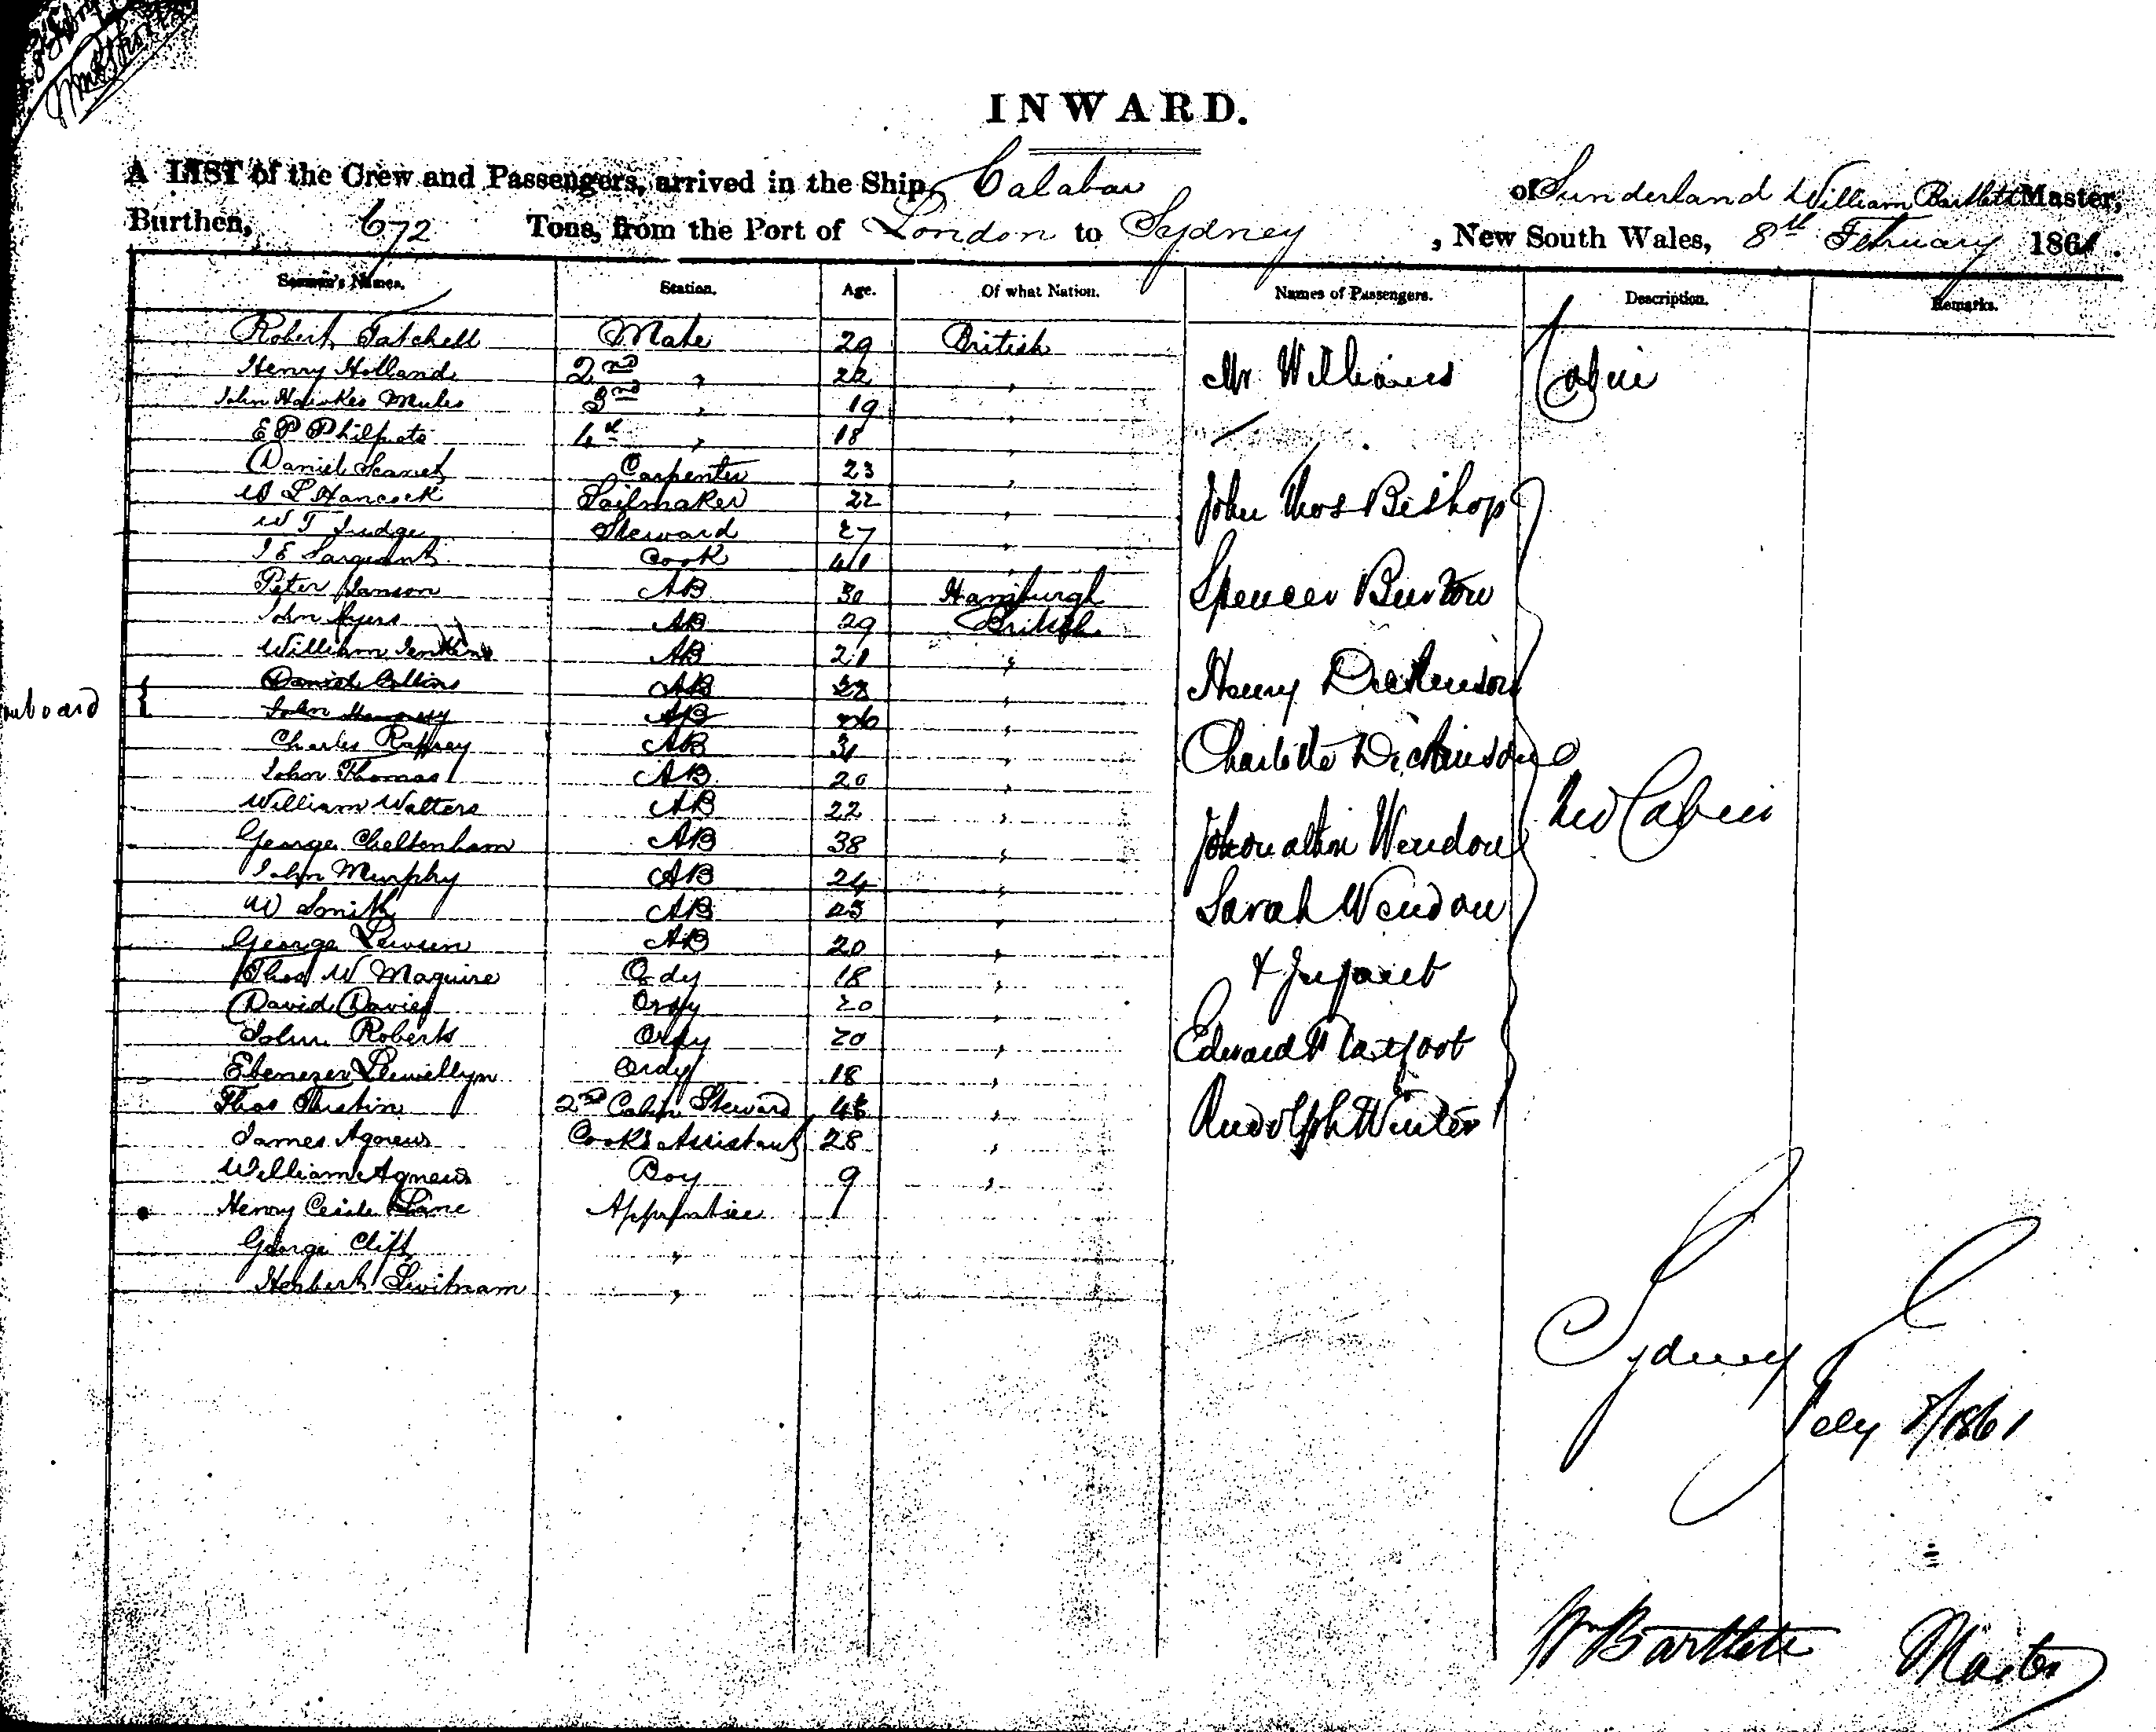 INWARD.
A LIST of the Crew and Passengers, arrived in the Ship Calabar of Sunderland William Bartlett Master,
Burthen, 672 Tons, from the Port of London to Sydney, New South Wales, 8th February 1861.
Seamen's Names. Station. Age. Of what Nation. Names of Passengers. Description. Remarks.
Robert Tatchell Mate 29 British
Henry Holland 2nd " 22 "
Mr Williams Cabin
John Hawkes Mules 3rd " 19 "
E P Philpots 4th " 18 "
Daniel Carpenter 23 "
W L Hancock Sailmaker 22 "
John Thos Bishop
W T Judge Steward 27 "
I E Sargeant Cook 41 "
Peter Janson AB 30 Hamburgh
Spencer Burton
John Ayers AB 29 British
William Jenkins AB 21 "
Daniel Collins AB 28 "
Henry Dickinson
John AB "
Charles Raffrey AB 31 "
Charlotte Dickinson
John Thomas AB 20 "
William Walters AB 22 "
2nd Cabin
George Cheltenham AB 38 "
Johonathin Wendon
John Murphy AB 24 "
W Smith AB 23 "
Sarah Wendon
George Lewsen AB 20 "
Thos W Maguire Ordy 18 "
& Infant
David Davies Ordy 20 "
John Roberts Ordy 20 "
Edward
Ebenezer Llewellyn Ordy 18 "
Thos 2nd Cabin Steward "
Rudolph Winter
James Agnew Cook's Assistant 28 "
William Agnew Boy 9 "
Henry Cecile Lane Apprentice
George Clift "
Herbert "
Sydney
8/1861
Wm Bartlett Master